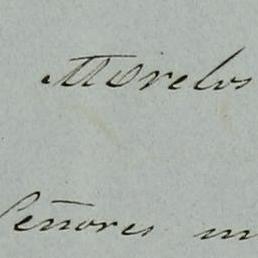 Morelos
Señores m